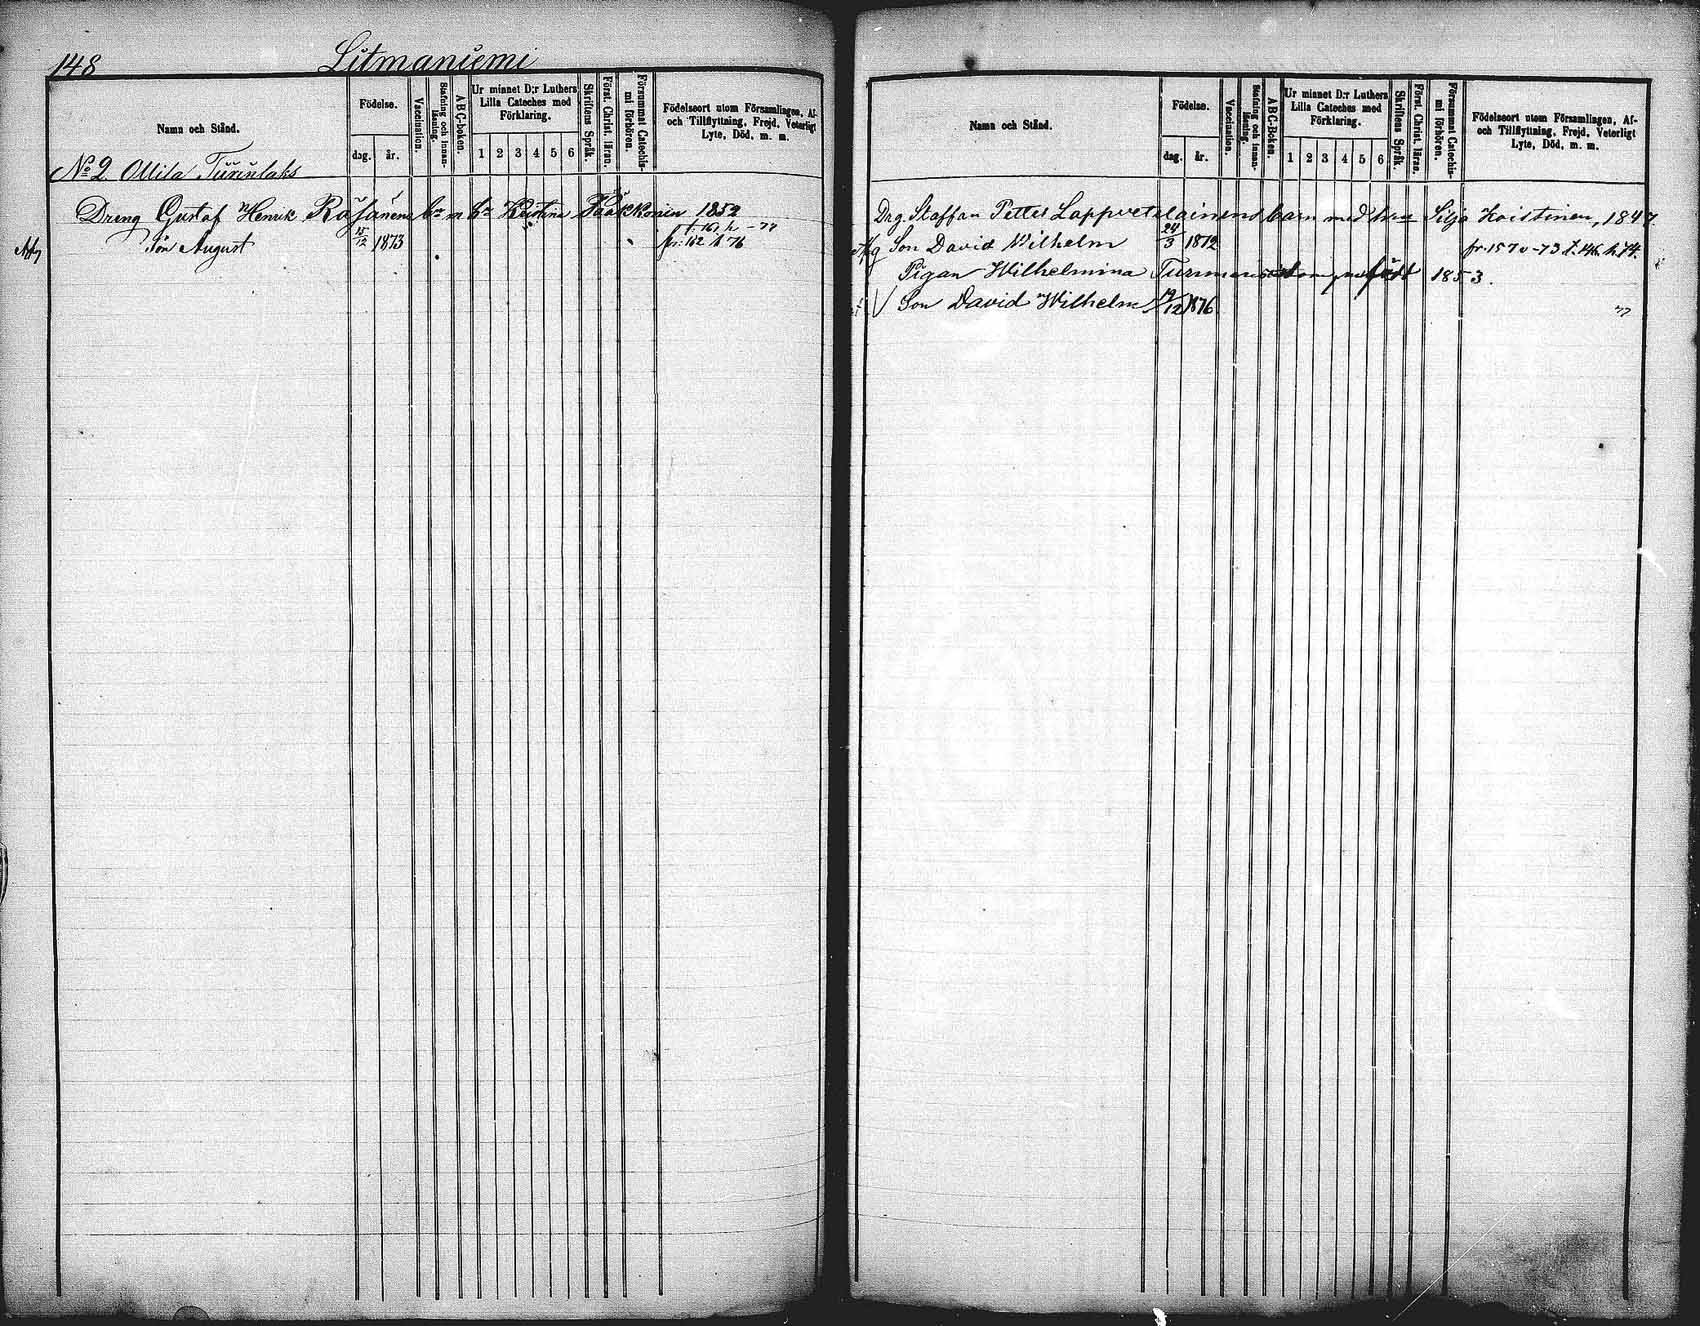 148 Litmaniemi
Namn och Stånd.
Födelse.
dag. år.
Vaccination.
Stafning och innan-läsning.
ABC-boken.
Ur minnet D:r Luthers Lilla Cateches med Förklaring.
1 2 3 4 5 6
Skriftens Språk.
Först. Christ. läran.
Försummat Catechis-mi förhören.
Födelseort utom Församlingen, Af- och Tillflyttning, Frejd, Veterligt Lyte, Död, m. m.
No 2 Ollila Turinlaks
Dreng Gustaf Henrik Räsänens bn m hu Kristina Pääkkonen 1852
t. 161 h -77
Son August 15/12 1873 fr. 162 h 76
Namn och Stånd.
Födelse.
dag. år.
Vaccination.
Stafning och innan-läsning.
ABC-Boken.
Ur minnet D:r Luthers Lilla Cateches med Förklaring.
1 2 3 4 5 6
Skriftens Språk.
Först. Christ. läran.
Försummat Catechis-mi förhören.
Födelseort utom Församlingen, Af- och Tillflyttning, Frejd, Veterligt Lyte, Död, m. m.
Drg. Staffan Petter Lappvetelainens barn med hu Silja Koistinen, 1847.
Son David Wilhelm 24/3 1872 fr. 157 v -73 t. 146 h 74.
Pigan Wilhelmina Turunens född 1853.
Son David Wilhelm 19/12 1876